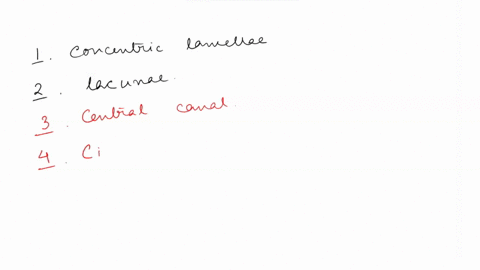 1. Concentric lamellae
2. lacunae.
3. Central canal.
4. Ci